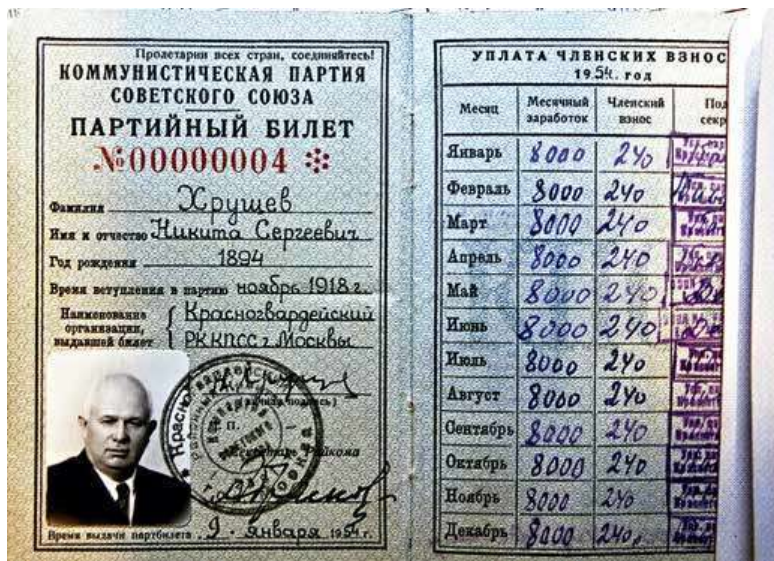 Пролетарии всех стран, соединяйтесь!
КОММУНИСТИЧЕСКАЯ ПАРТИЯ
СОВЕТСКОГО СОЮЗА
ПАРТИЙНЫЙ БИЛЕТ
№00000004
Фамилия Хрущев
Имя и отчество Никита Сергеевич
Год рождения 1894
Время вступления в партию ноябрь 1918 г.
Наименование организации, выдавшей билет { Красногвардейский
РК КПСС г. Москвы
(личная подпись)
М. П.
Секретарь Райкома
Время выдачи партбилета 9 января 1954 г.
УПЛАТА ЧЛЕНСКИХ ВЗНОС
1954 год
Месяц Месячный заработок Членский взнос Под секр
Январь 8000 240
Февраль 8000 240
Март 8000 240
Апрель 8000 240
Май 8000 240
Июнь 8000 240
Июль 8000 240
Август 8000 240
Сентябрь 8000 240
Октябрь 8000 240
Ноябрь 8000 240
Декабрь 8000 240